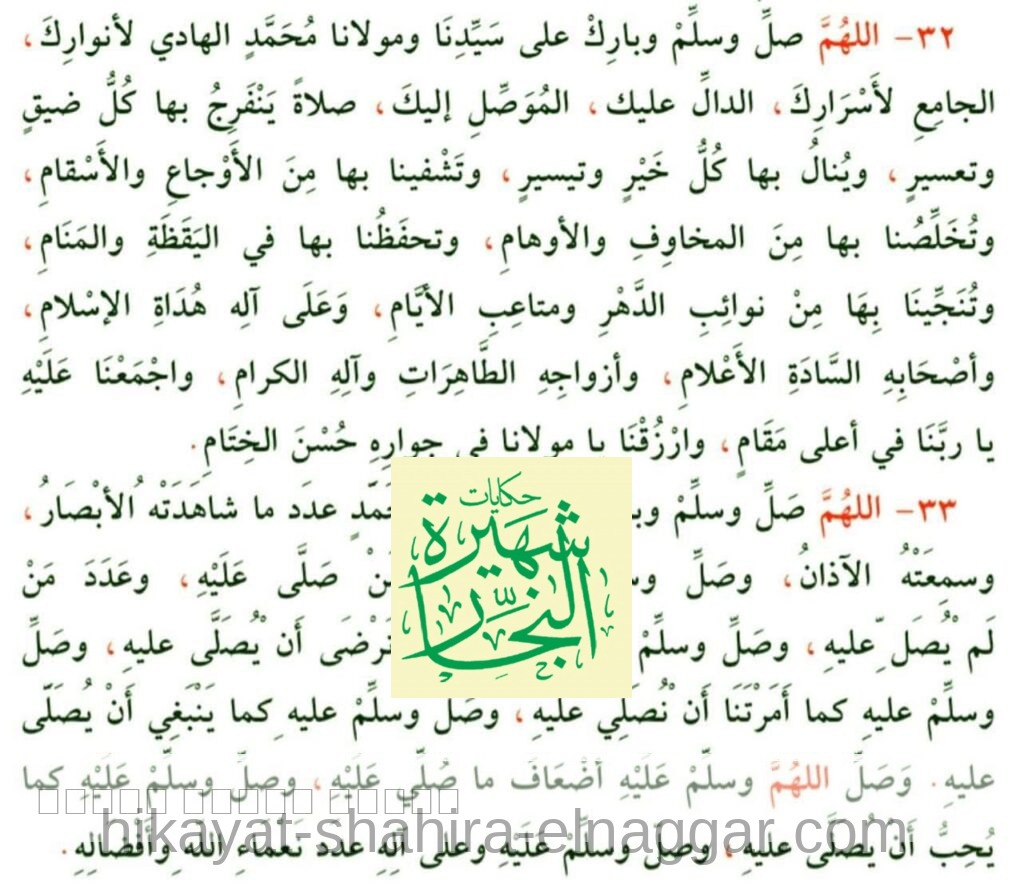 ٣٢- اللهُمَّ صلِّ وسلِّمْ وبارِكْ على سَيِّدِنَا ومولانا مُحَمَّدٍ الهادي لأنوارِكَ،
الجامِعِ لأَسْرَارِكَ، الدالِّ عليك، المُوَصِّلِ إليكَ، صلاةً يَنْفَرِجُ بها كُلُّ ضيقٍ
وتعسيرٍ، ويُنالُ بها كُلُّ خَيْرٍ وتيسيرٍ، وتَشْفينا بها مِنَ الأَوْجاعِ والأَسْقامِ،
وتُخَلِّصُنا بها مِنَ المخاوِفِ والأوهامِ، وتحفَظُنا بها في اليَقَظَةِ والمَنَامِ،
وتُنَجِّينَا بِهَا مِنْ نوائِبِ الدَّهْرِ ومتاعِبِ الأيَّامِ، وَعَلَى آلِه هُدَاةِ الإسْلامِ،
وأصْحَابِهِ السَّادَةِ الأَعْلامِ، وأزواجِهِ الطَّاهِرَاتِ وآلِهِ الكرامِ، واجْمَعْنَا عَلَيْهِ
يا ربَّنَا في أعلى مَقَامٍ، وارْزُقْنَا يا مولانا في جوارِهِ حُسْنَ الخِتَامِ.
٣٣- اللهُمَّ صَلِّ وسلِّمْ عدَد ما شاهَدَتْه الأبْصَارُ،
وسمِعَتْهُ الآذانُ، وصَلِّ صَلَّى عَلَيْهِ، وعَدَدَ مَنْ
لَم يُصَلّ عليهِ، وصَلِّ وسلِّمْ أن يُصَلَّى عليهِ، وصَلِّ
وسلِّمْ عليهِ كما أَمَرْتَنَا أن نُصلِّي عليهِ، وصَلِّ وسلِّمْ عليهِ كما يَنْبَغِي أَنْ يُصَلّى
عليهِ. وَصَلِّ اللهُمَّ وسلِّمْ عَلَيْهِ أضْعَافَ ما صُلِّي عَلَيْهِ، وصلِّ وسلِّمْ عَلَيْهِ كما
يُحِبُّ أَنْ يُصَلَّى عليهِ، وصلِّ وسلَّمْ عَلَيْهِ وعلى آلِهِ عدَد نَعْمَاءِ اللهِ وأَفْضالِهِ.
حكايات
شهيرة
النجار
hikayat-shahira-elnaggar.com